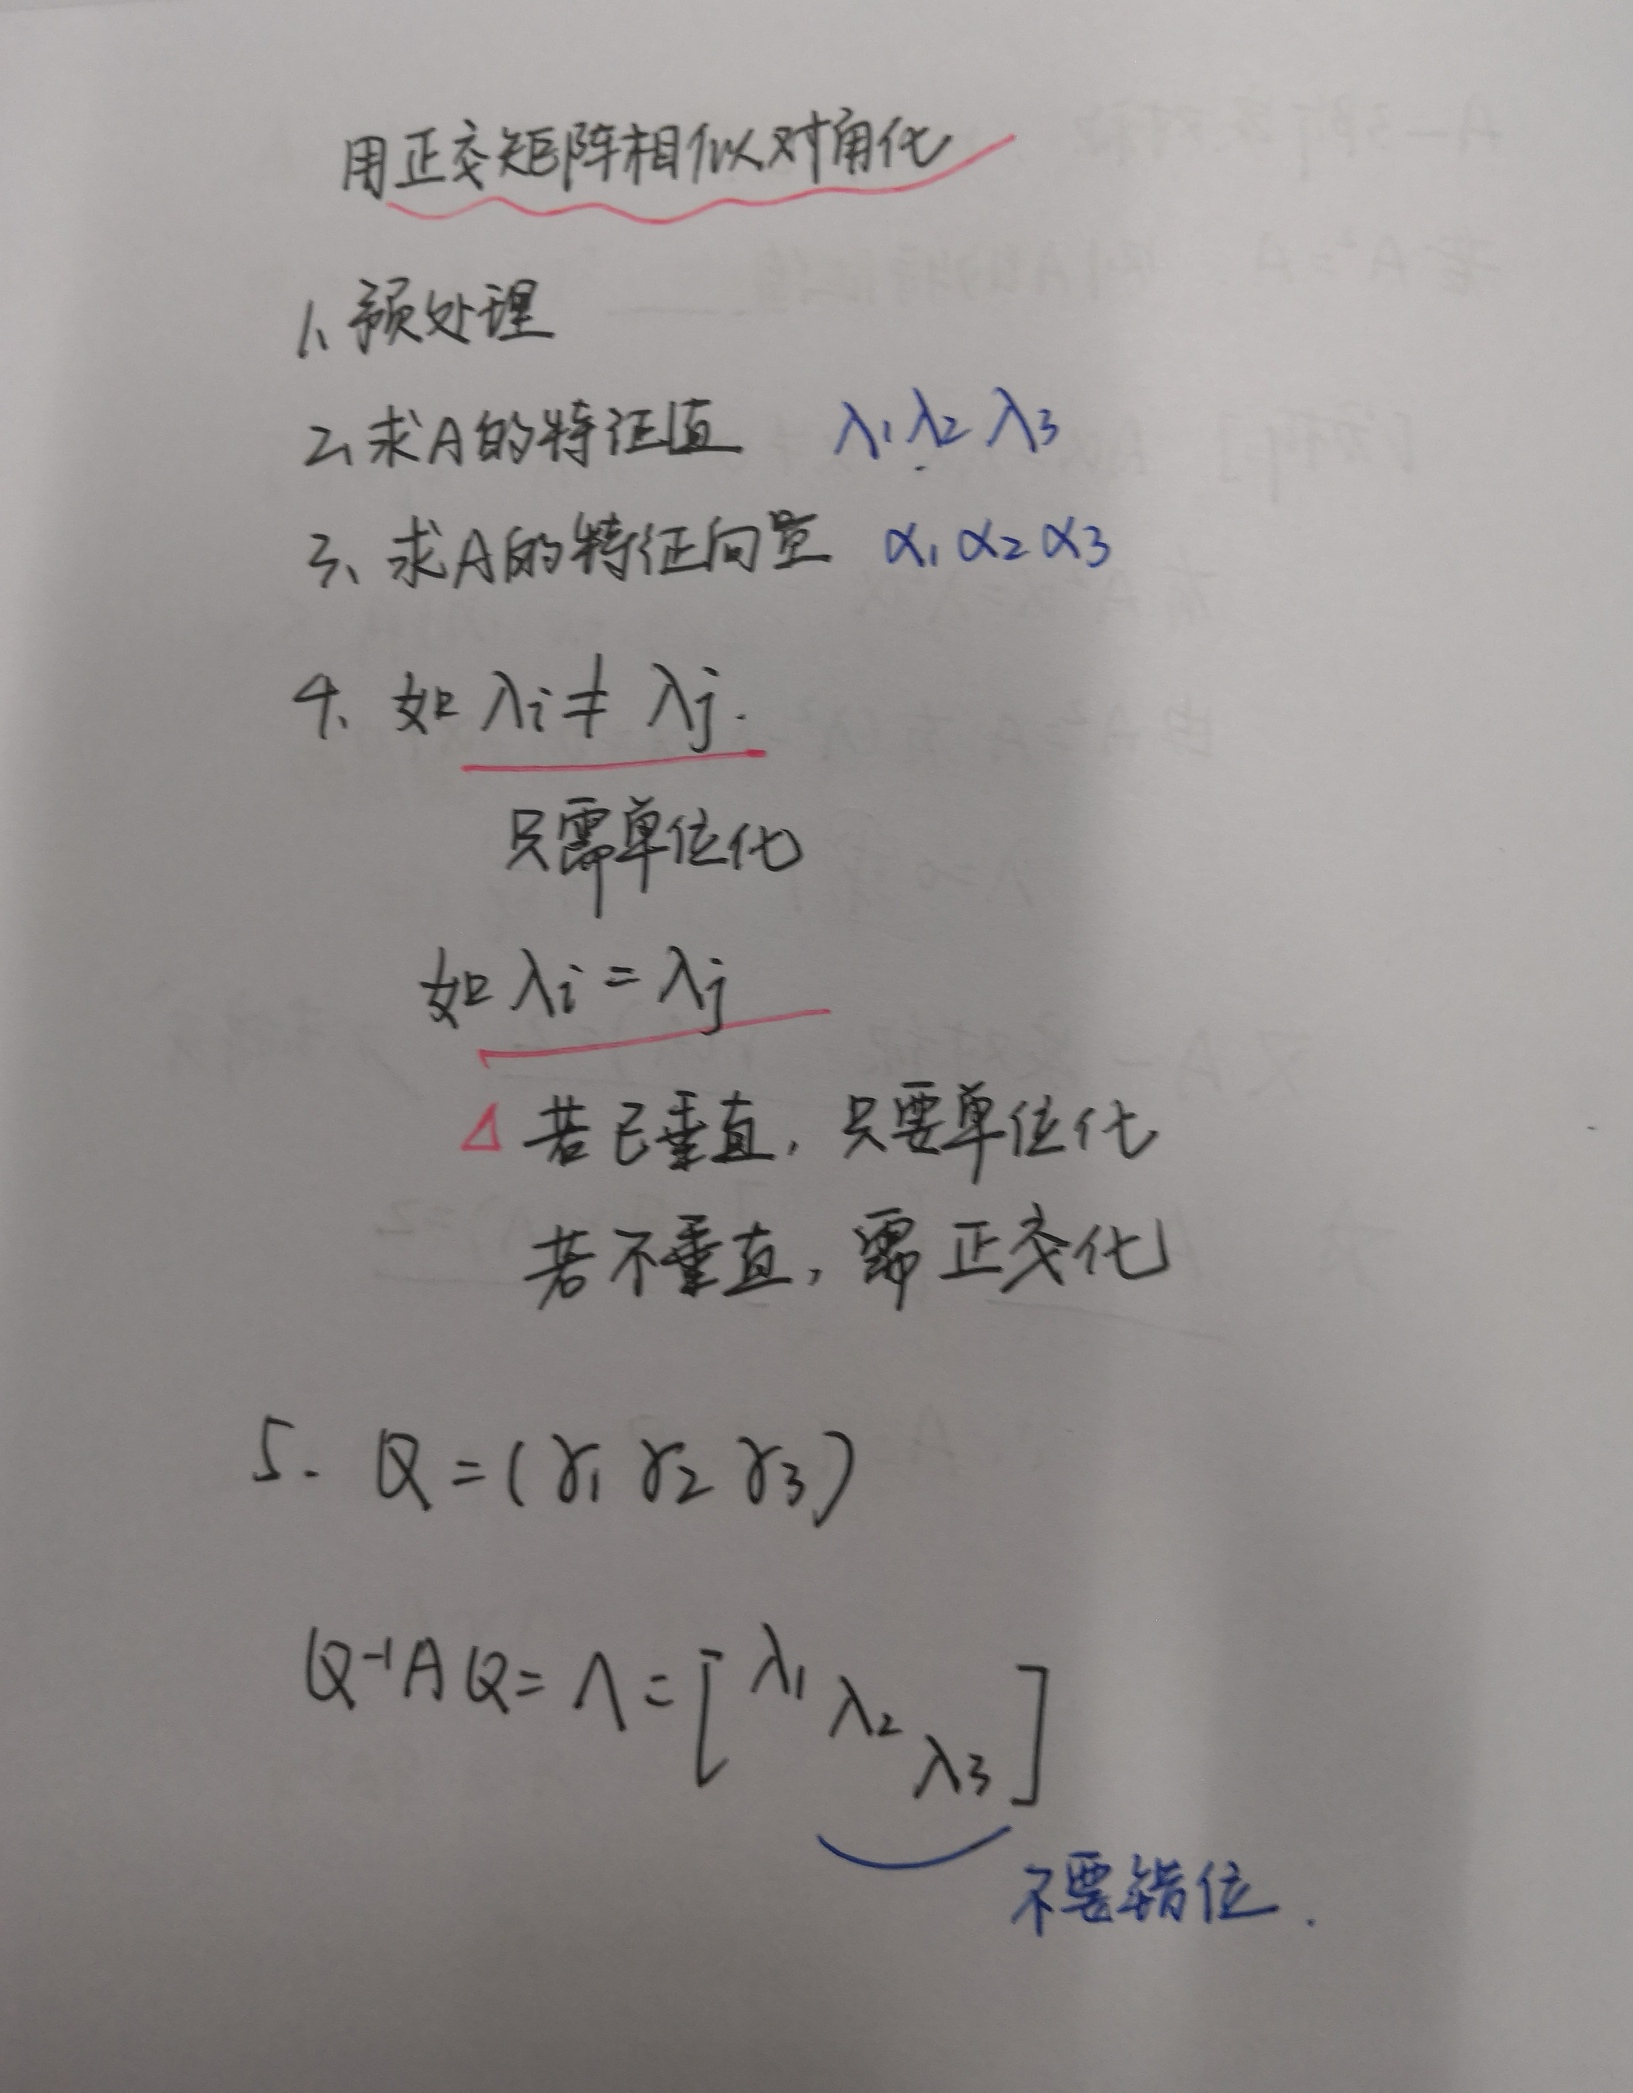 用正交矩阵相似对角化
1、预处理
2、求A的特征值 λ1 λ2 λ3
3、求A的特征向量 α1 α2 α3
4、如 λi ≠ λj.
只需单位化
如 λi = λj
△ 若已垂直, 只要单位化
若不垂直, 需正交化
5. Q = (γ1 γ2 γ3)
Q⁻¹AQ = Λ = [λ1 λ2 λ3]
不要错位.